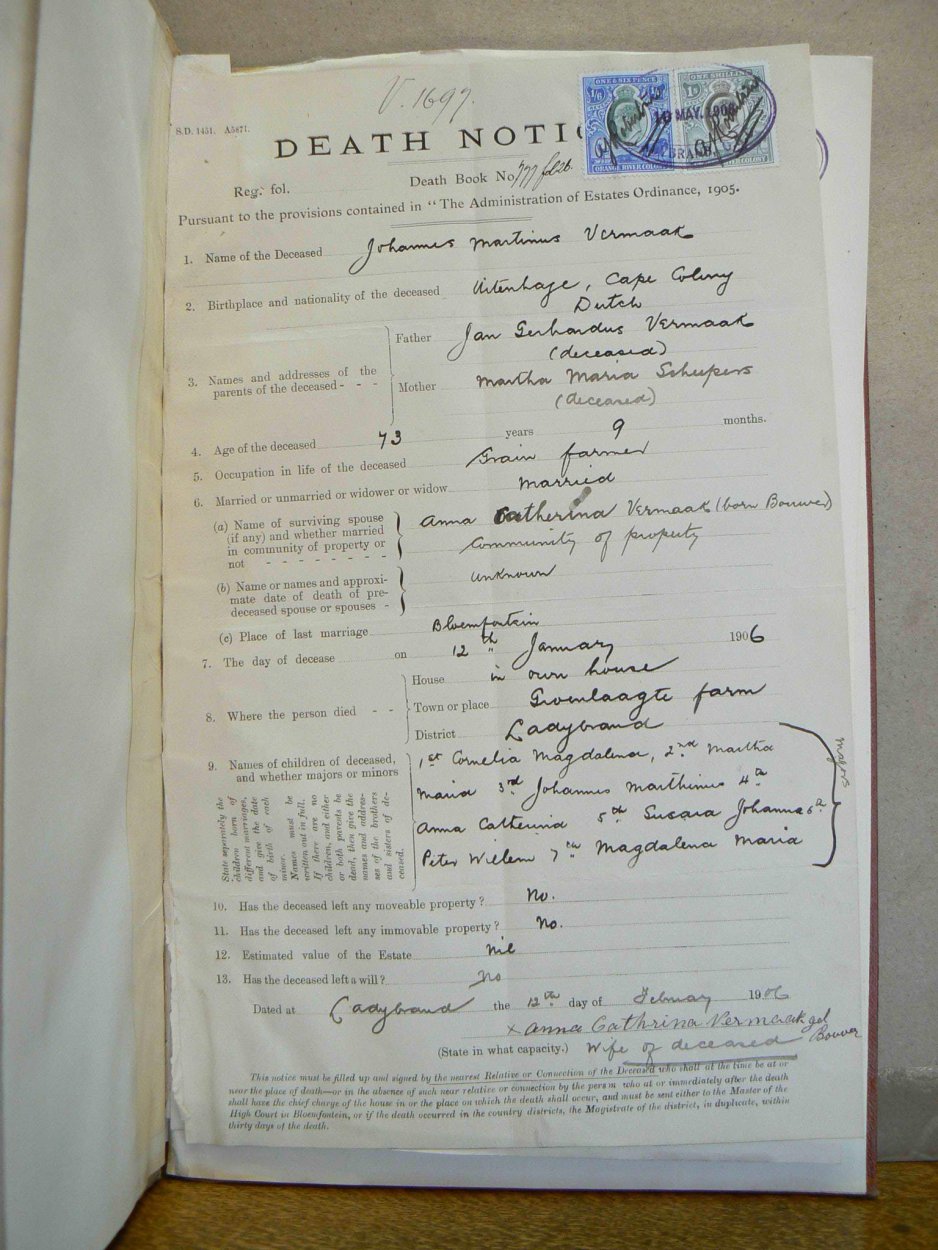 V. 1697.
S.D. 1451. A5871.
ONE & SIX PENCE
1/6
ORANGE RIVER COLONY
ONE SHILLING
10 MAY. 1906
DEATH NOTIC
Reg. fol. Death Book No. 777 fol 26.
Pursuant to the provisions contained in "The Administration of Estates Ordinance, 1905.
1. Name of the Deceased Johannes Martinus Vermaak
2. Birthplace and nationality of the deceased Uitenhage, Cape Colony
Dutch
3. Names and addresses of the parents of the deceased - - -
Father Jan Gerhardus Vermaak
(deceased)
Mother Martha Maria Scheepers
(deceased)
4. Age of the deceased 73 years 9 months.
5. Occupation in life of the deceased Grain farmer
6. Married or unmarried or widower or widow Married
(a) Name of surviving spouse
(if any) and whether married
in community of property or
not - - - - - - - -
Anna Catherina Vermaak (born Bouwer)
Community of property
(b) Name or names and approxi-
mate date of death of pre-
deceased spouse or spouses -
unknown
(c) Place of last marriage Bloemfontein
7. The day of decease on 12th " January 1906
8. Where the person died - -
House in own house
Town or place Groenlaagte farm
District Ladybrand
9. Names of children of deceased,
and whether majors or minors
State separately the
children born of
different marriages,
and give the date
of birth of each
minor.
Names must be
written out in full.
If there are no
children, and either
or both parents be
dead, then give the
names and addres-
ses of the brothers
and sisters of de-
ceased.
1st Cornelia Magdalena, 2nd Martha
Maria 3rd Johannes Marthinus 4th
Anna Catherina 5th Susara Johanna 6th
Peter Willem 7th Magdalena Maria
majors
10. Has the deceased left any moveable property? No.
11. Has the deceased left any immovable property? No.
12. Estimated value of the Estate Nil
13. Has the deceased left a will? No
Dated at Ladybrand the 12th day of February 1906
x Anna Cathrina Vermaak gel
Bouwer
(State in what capacity.) Wife of deceased
This notice must be filled up and signed by the nearest Relative or Connection of the Deceased who shall at the time be at or
near the place of death—or in the absence of such near relative or connection by the person who at or immediately after the death
shall have the chief charge of the house in or the place on which the death shall occur, and must be sent either to the Master of the
High Court in Bloemfontein, or if the death occurred in the country districts, the Magistrate of the district, in duplicate, within
thirty days of the death.